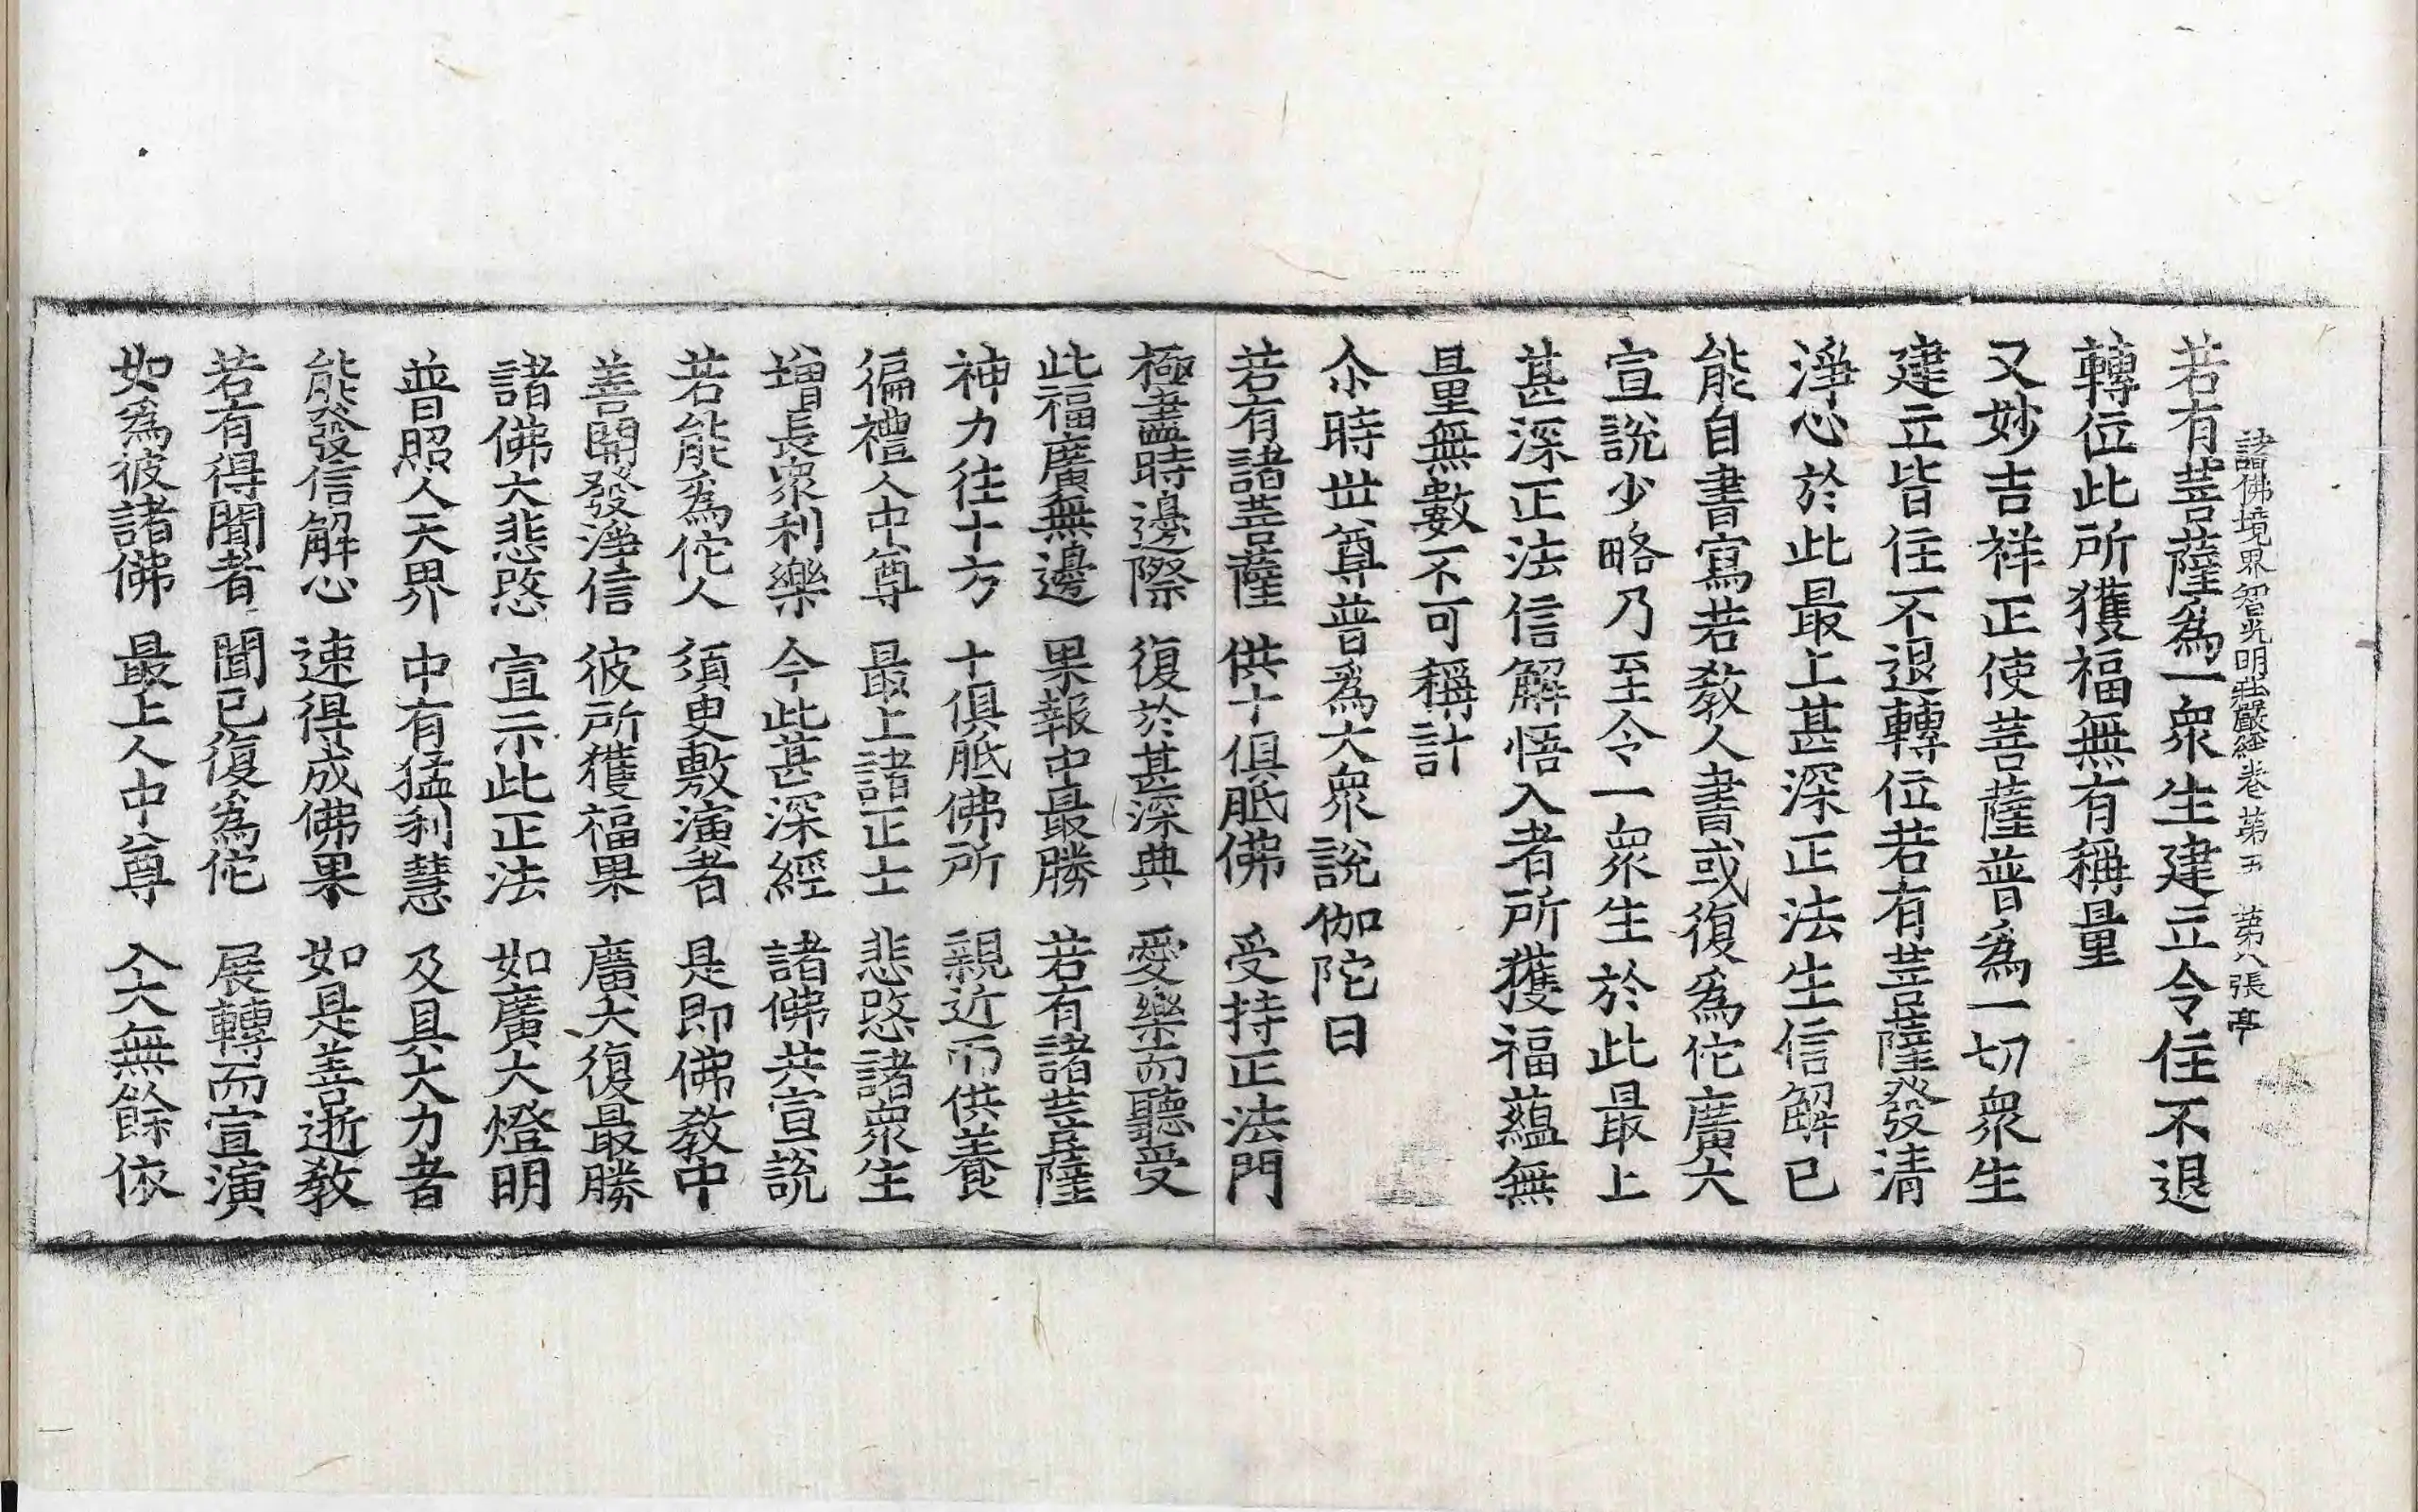 諸佛境界智光明莊嚴經卷第五　第八張　亭
若有菩薩爲一衆生建立令住不退
轉位此所獲福無有稱量
又妙吉祥正使菩薩普爲一切衆生
建立皆住不退轉位若有菩薩發清
淨心於此最上甚深正法生信解已
能自書寫若教人書或復爲佗廣大
宣說少略乃至令一衆生於此最上
甚深正法信解悟入者所獲福蘊無
量無數不可稱計
尒時世尊普爲大衆說伽陀曰
若有諸菩薩　供十俱胝佛　受持正法門
極盡時邊際　復於甚深典　愛樂而聽受
此福廣無邊　果報中最勝　若有諸菩薩
神力往十方　十俱胝佛所　親近而供養
徧禮人中尊　最上諸正士　悲愍諸衆生
增長衆利樂　今此甚深經　諸佛共宣說
若能爲佗人　須臾敷演者　是即佛教中
善開發淨信　彼所獲福果　廣大復最勝
諸佛大悲愍　宣示此正法　如廣大燈明
普照人天界　中有猛利慧　及具大力者
能發信解心　速得成佛果　如是善逝教
若有得聞者　聞已復爲佗　展轉而宣演
如爲彼諸佛　最上人中尊　入大無餘依